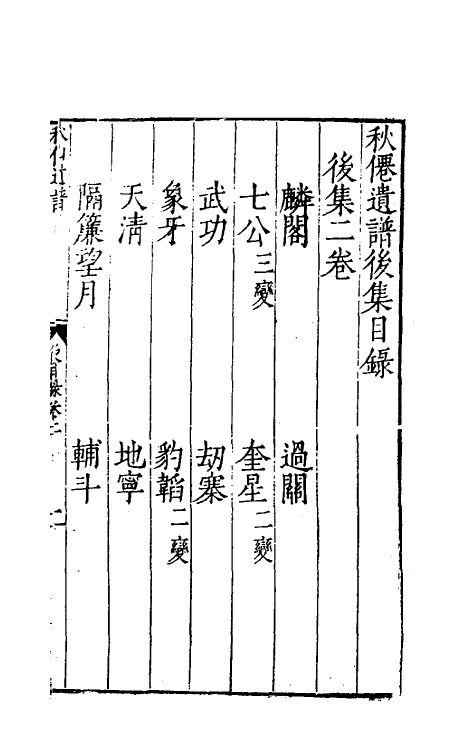 秋僊遺譜後集目錄
後集二卷
麟閣 過關
七公三變 奎星二變
武功 刼寨
象牙 豹韜二變
天清 地寧
隔簾望月 輔斗